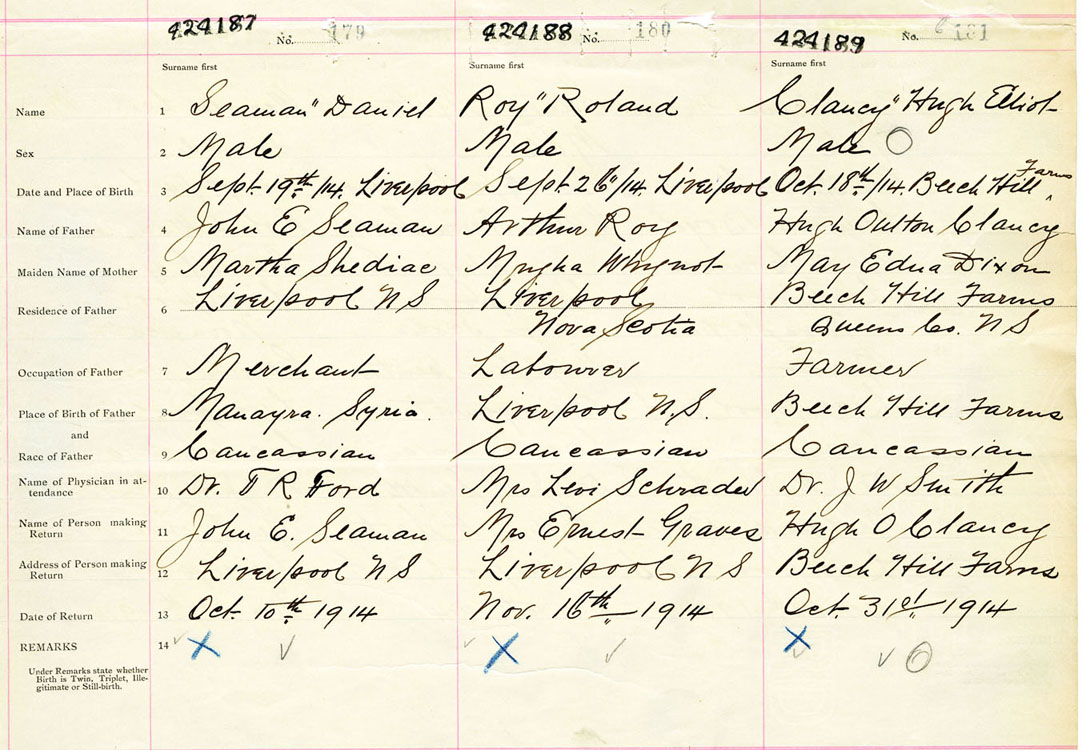 424187 No. 179 424188 No. 180 424189 No. 181
Surname first Surname first Surname first
Name 1 Seaman" Daniel Roy" Roland Clancy" Hugh Elliot
Sex 2 Male Male Male
Farms
Date and Place of Birth 3 Sept. 19th/14. Liverpool Sept 26"/14. Liverpool Oct. 18th/14. Beech Hill
Name of Father 4 John E Seaman Arthur Roy Hugh Oulton Clancy
Maiden Name of Mother 5 Martha Shediac Whynot May Edna Dixon
Residence of Father 6 Liverpool NS Liverpool Beech Hill Farms
Nova Scotia Queens Co. NS
Occupation of Father 7 Merchant Labourer Farmer
Place of Birth of Father 8 Manayra. Syria. Liverpool N.S. Beech Hill Farms
and
Race of Father 9 Caucassian Caucassian Caucassian
Name of Physician in at-
tendance 10 Dr. T R Ford Mrs Levi Schrader Dr. J W Smith
Name of Person making
Return 11 John E. Seaman Mrs Ernest Graves Hugh O Clancy
Address of Person making
Return 12 Liverpool NS Liverpool NS Beech Hill Farms
Date of Return 13 Oct. 10th 1914 Nov. 16th 1914 Oct. 31st 1914
REMARKS 14
Under Remarks state whether
Birth is Twin, Triplet, Ille-
gitimate or Still-birth.